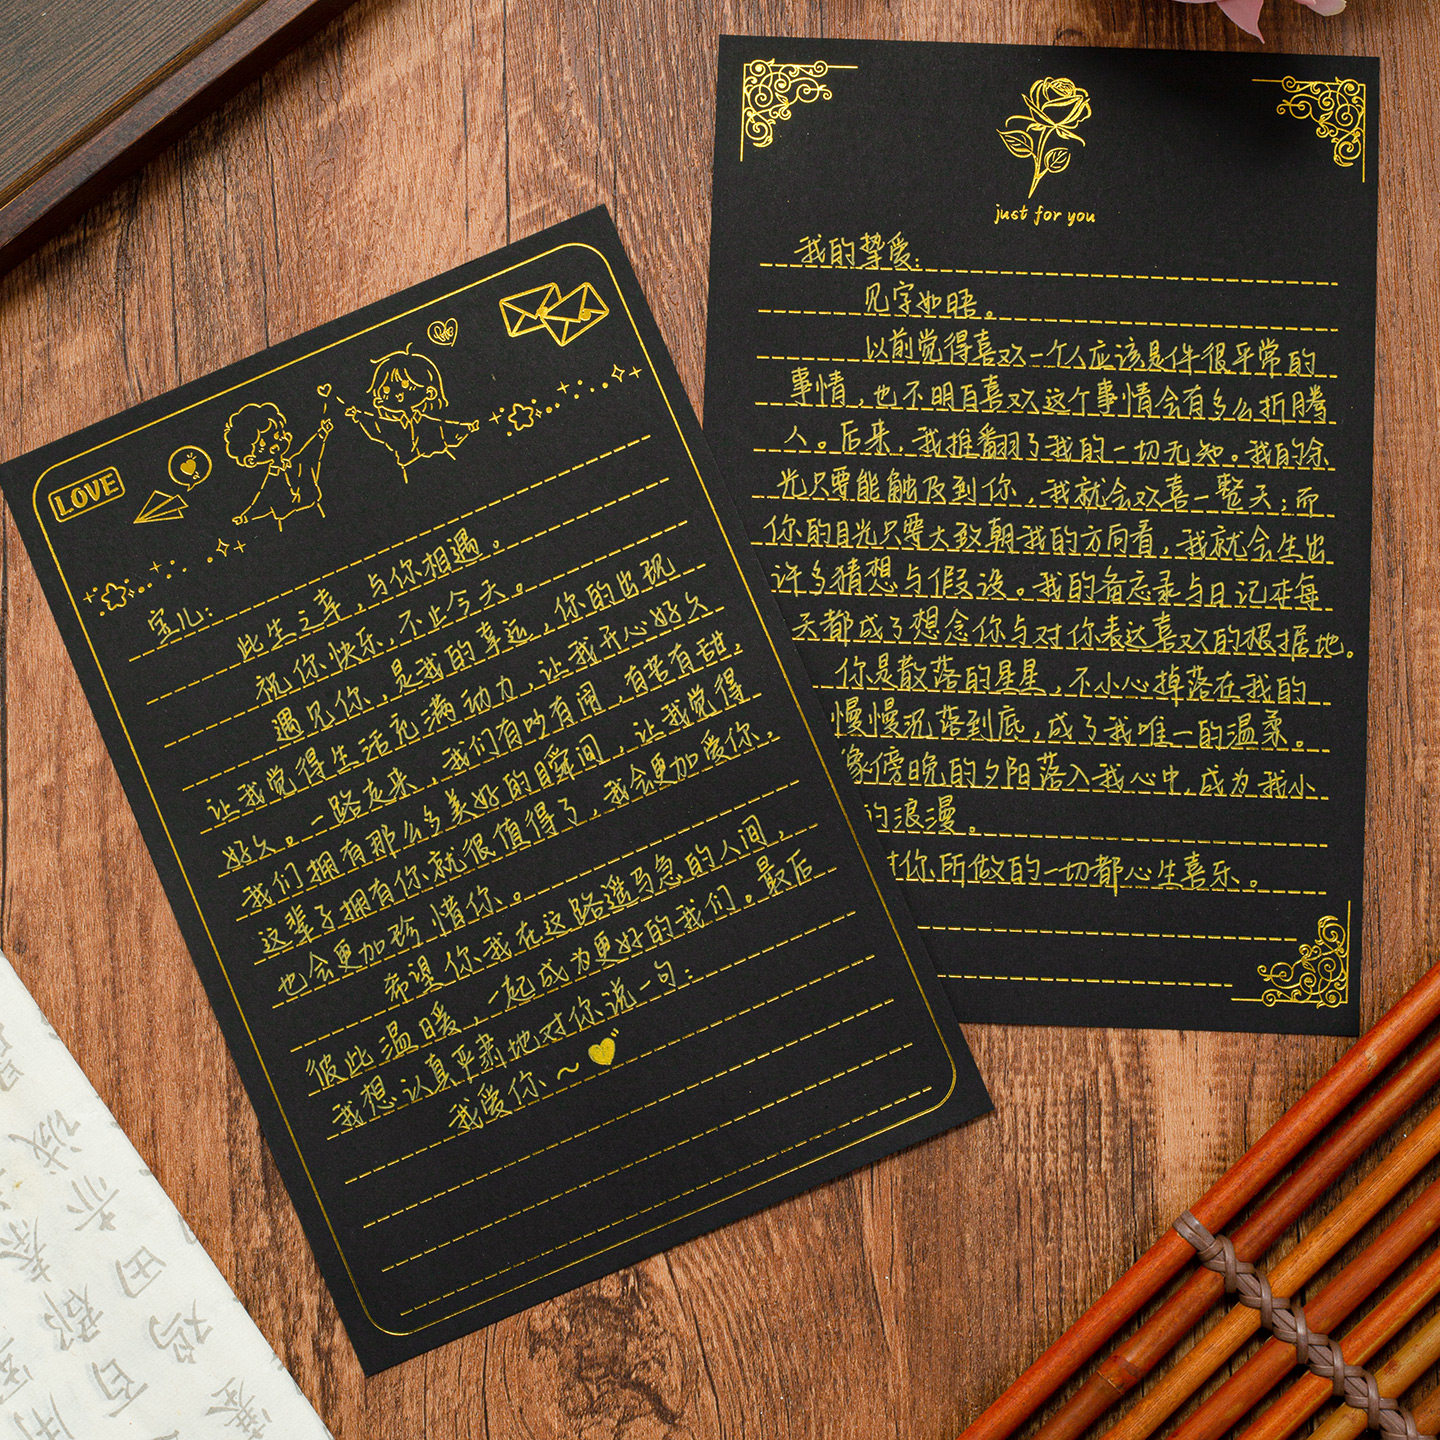 LOVE
宝儿：
此生之幸，与你相遇。
祝你快乐，不止今天。
遇见你，是我的幸运，你的出现
让我觉得生活充满动力，让我开心好久
好久。一路走来，我们有吵有闹，有苦有甜，
我们拥有那么多美好的瞬间，让我觉得
这辈子拥有你就很值得了，我会更加爱你，
也会更加珍惜你。
希望你我在这路遥马急的人间，
彼此温暖，一起成为更好的我们。最后
我想认真严肃地对你说一句：
我爱你～
just for you
我的挚爱：
见字如晤。
以前觉得喜欢一个人应该是件很平常的
事情，也不明白喜欢这个事情会有多么折腾
人。后来，我推翻了我的一切无知。我的余
光只要能触及到你，我就会欢喜一整天；而
你的目光只要大致朝我的方向看，我就会生出
许多猜想与假设。我的备忘录与日记本每
天都成了想念你与对你表达喜欢的根据地。
你是散落的星星，不小心掉落在我的
慢慢沉落到底，成了我唯一的温柔。
像傍晚的夕阳落入我心中，成为我小
的浪漫。
对你所做的一切都心生喜乐。